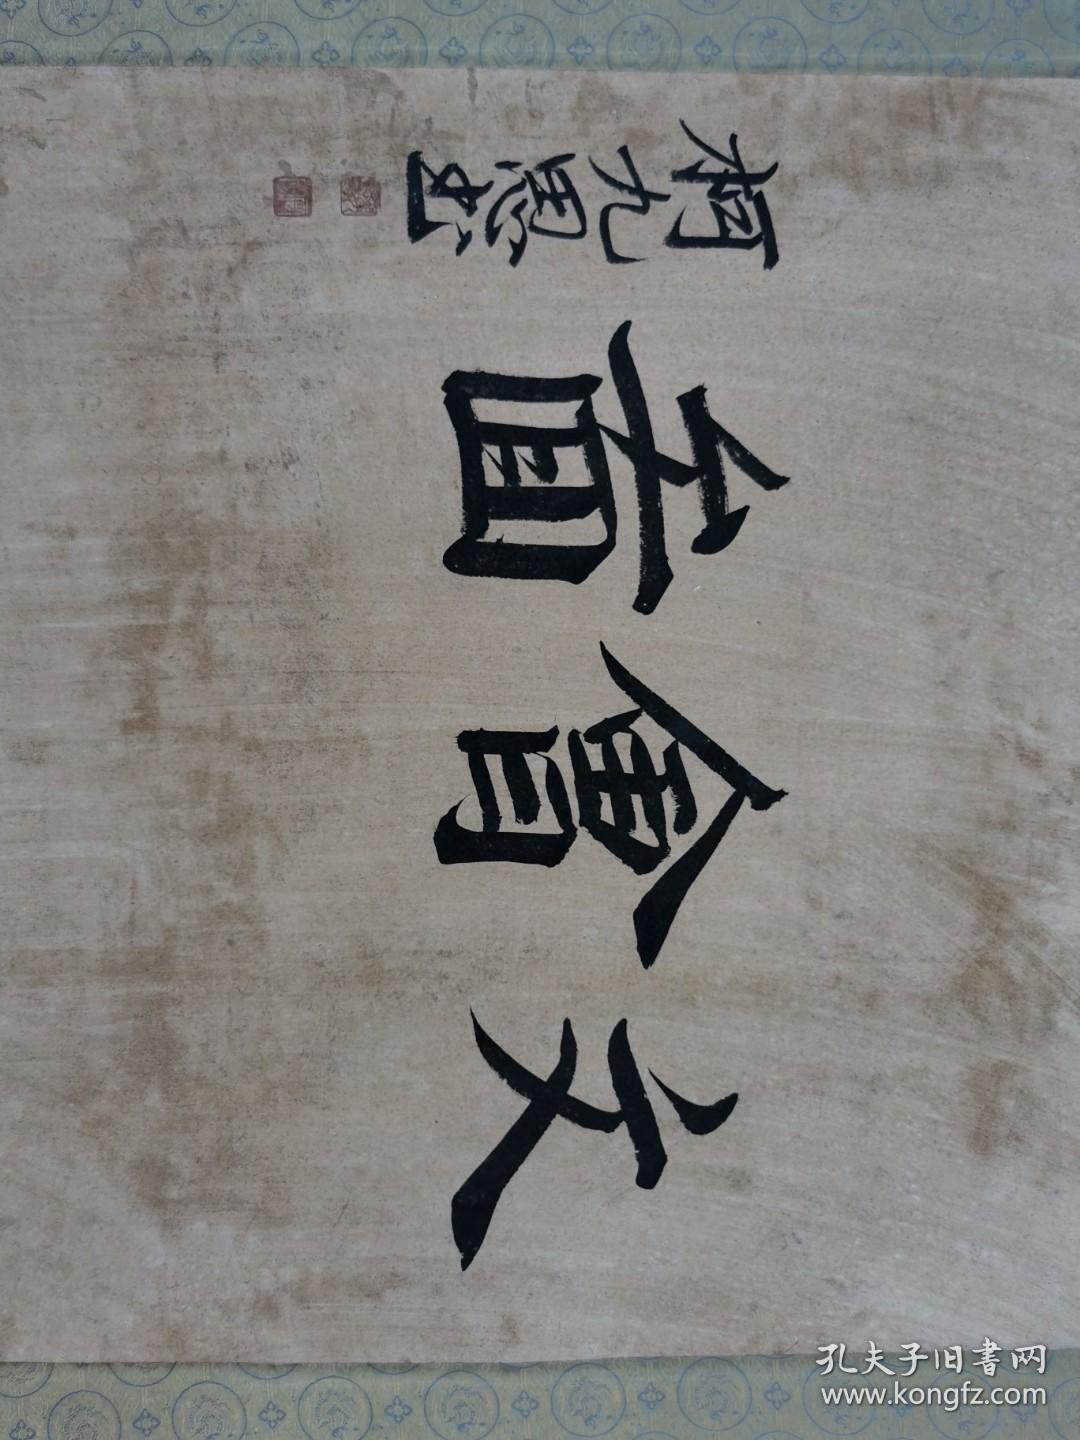 文會
柯九思書
孔夫子旧書网
www.kongfz.com